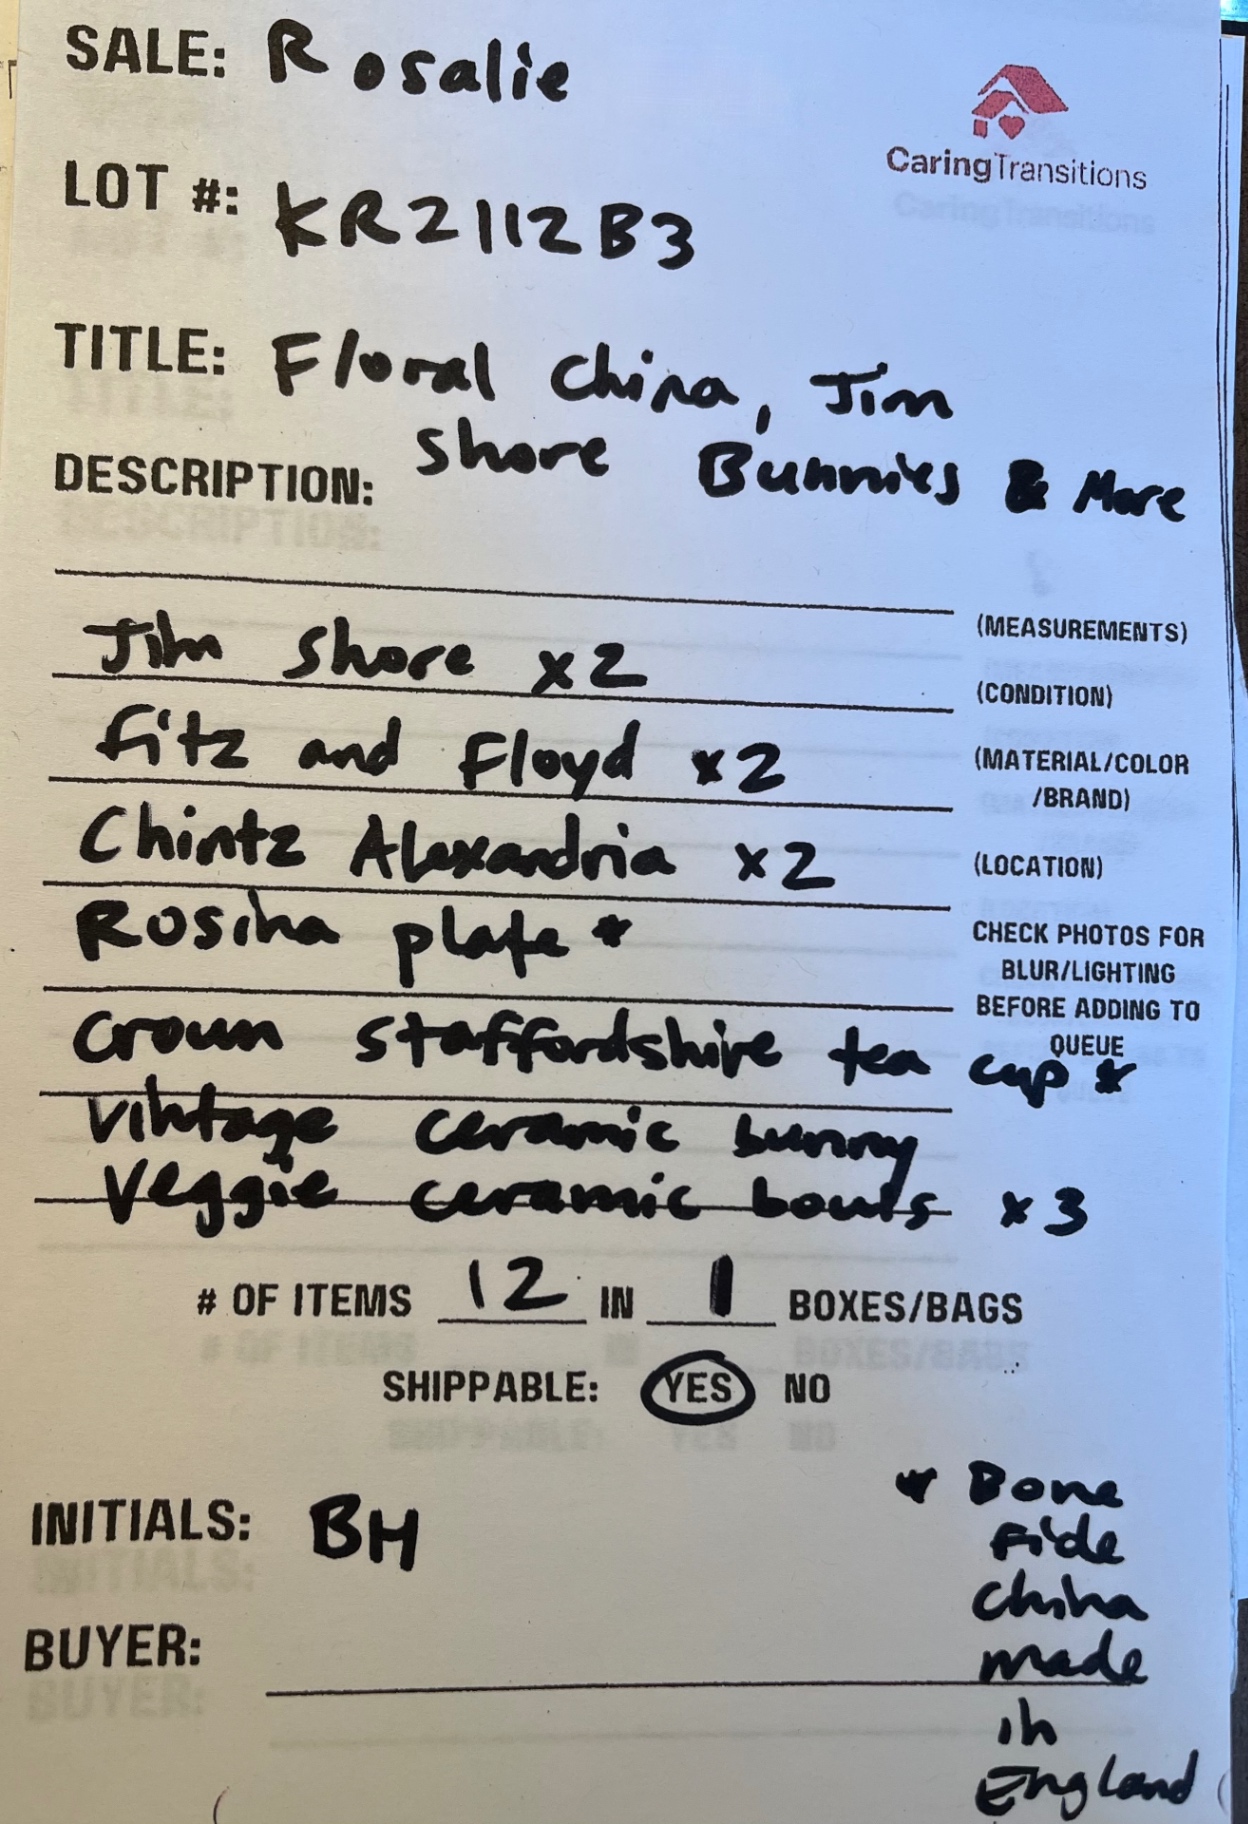 SALE: Rosalie
CaringTransitions
LOT #: KR2112B3
TITLE: Floral China, Jim
Shore Bunnies & More
DESCRIPTION:
(MEASUREMENTS)
Jim Shore x2
(CONDITION)
Fitz and Floyd x2
(MATERIAL/COLOR
/BRAND)
Chintz Alexandria x2
(LOCATION)
Rosina plate *
CHECK PHOTOS FOR
BLUR/LIGHTING
BEFORE ADDING TO
QUEUE
Crown Staffordshire tea cup *
Vintage ceramic bunny
Veggie ceramic bowls x3
# OF ITEMS 12 IN 1 BOXES/BAGS
SHIPPABLE: YES NO
INITIALS: BH
BUYER:
* Bone
Fide
China
made
in
England